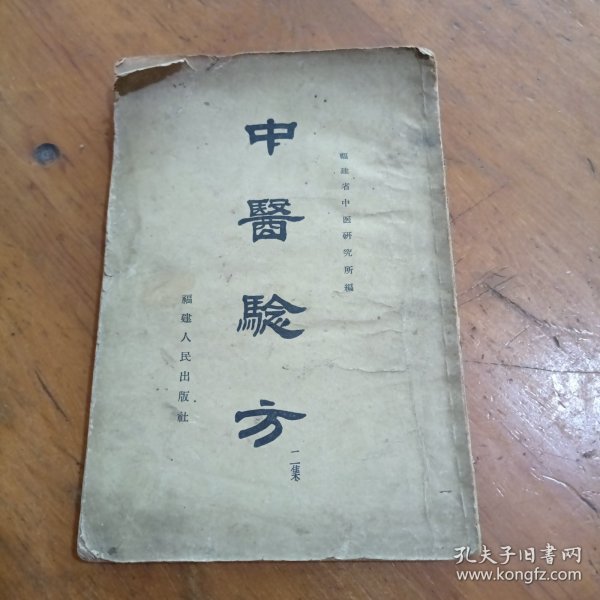 福建省中医研究所編
中醫驗方
二集
福建人民出版社
孔夫子旧书网
www.kongfz.com